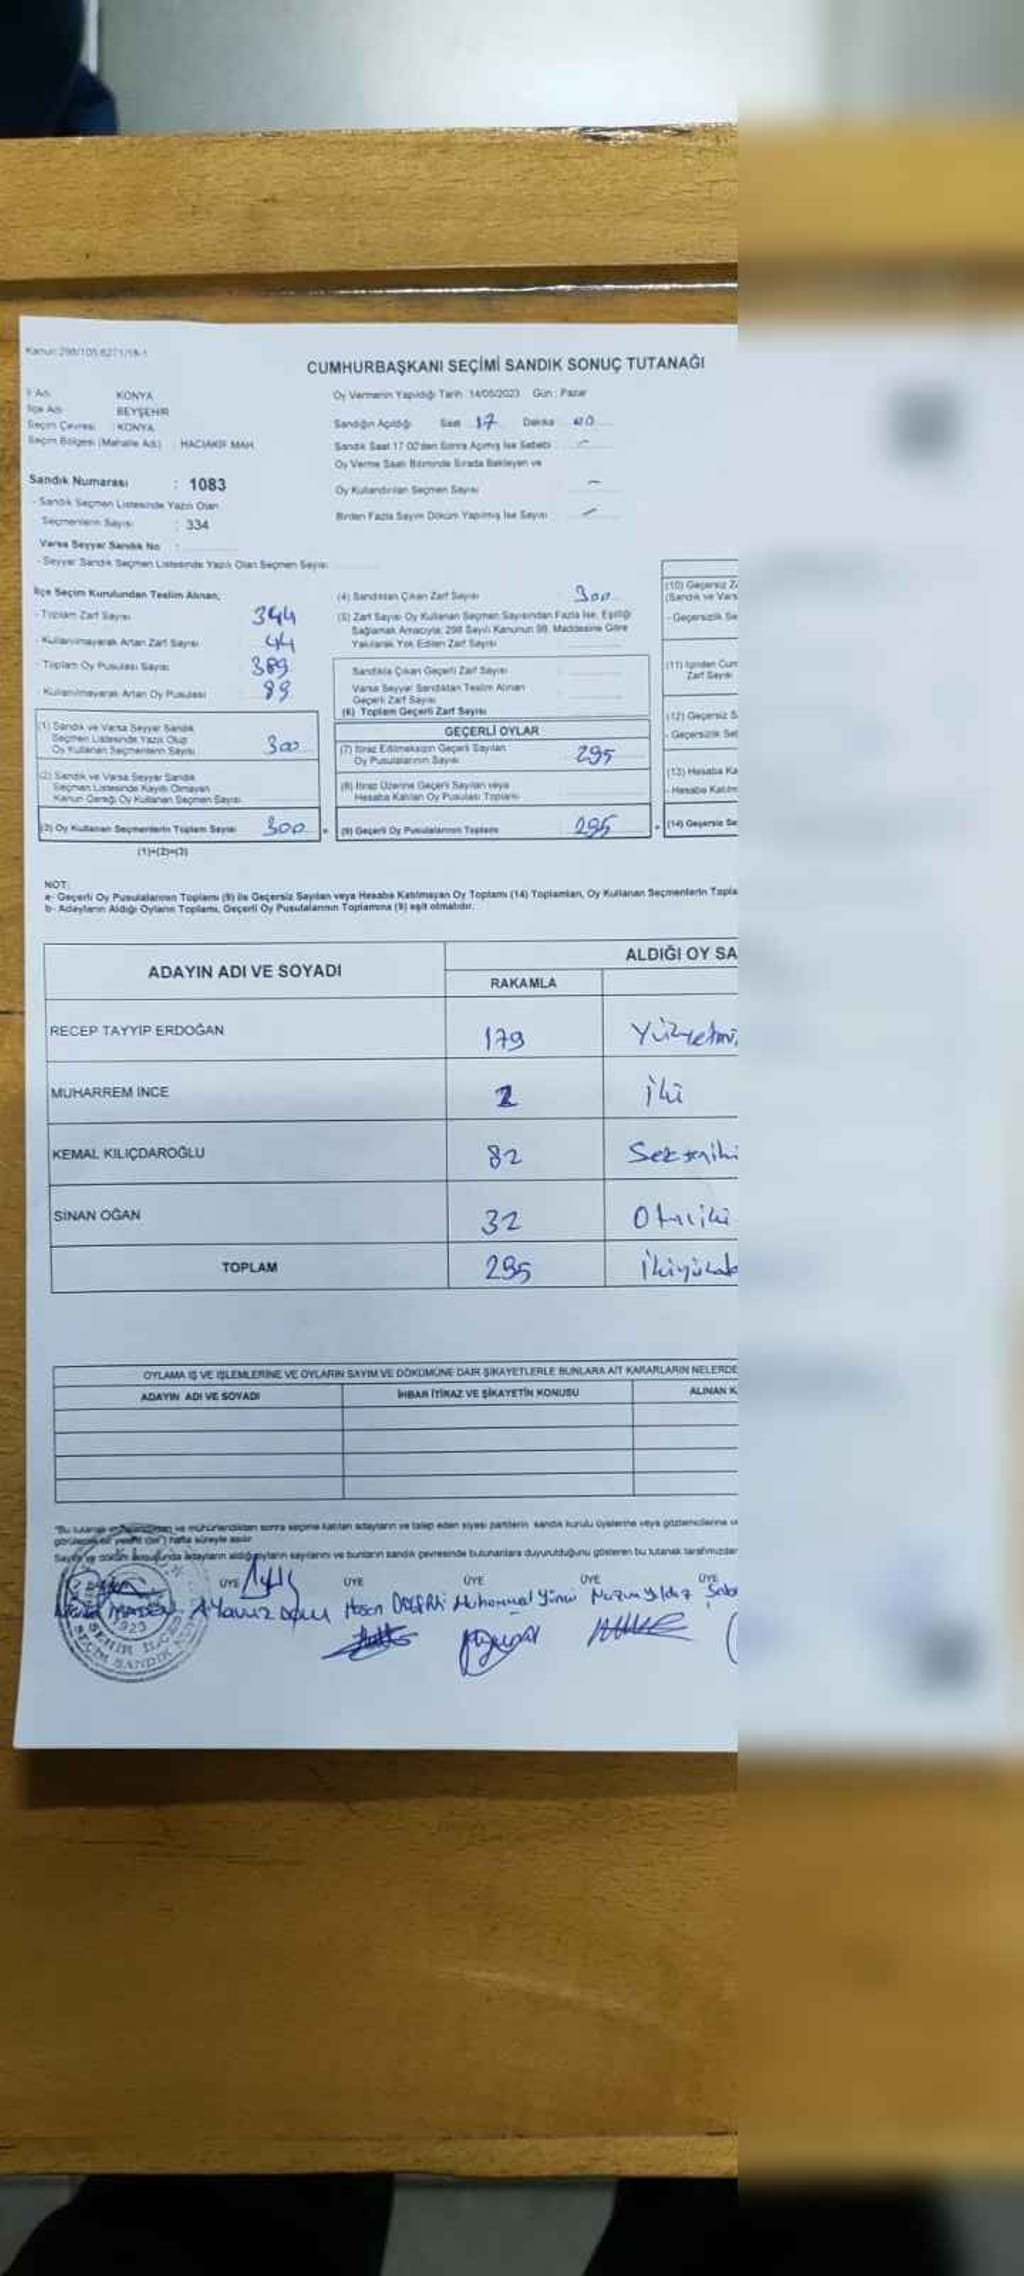 Kanun:298/105 6271/18-1
CUMHURBAŞKANI SEÇİMİ SANDIK SONUÇ TUTANAĞI
İl Adı KONYA
İlçe Adı BEYŞEHİR
Seçim Çevresi : KONYA
Seçim Bölgesi (Mahalle Adı) : HACIAKİF MAH
Sandık Numarası : 1083
- Sandık Seçmen Listesinde Yazılı Olan
Seçmenlerin Sayısı : 334
Varsa Seyyar Sandık No :
- Seyyar Sandık Seçmen Listesinde Yazılı Olan Seçmen Sayısı
Oy Vermenin Yapıldığı Tarih 14/05/2023 Gün : Pazar
Sandığın Açıldığı Saat 17 Dakika 00
Sandık Saat 17.00'den Sonra Açılmış İse Sebebi
Oy Verme Saati Bitiminde Sırada Bekleyen ve
Oy Kullandırılan Seçmen Sayısı
Birden Fazla Sayım Döküm Yapılmış İse Sayısı
İlçe Seçim Kurulundan Teslim Alınan;
- Toplam Zarf Sayısı 344
- Kullanılmayarak Artan Zarf Sayısı 44
- Toplam Oy Pusulası Sayısı 389
- Kullanılmayarak Artan Oy Pusulası 89
(1) Sandık ve Varsa Seyyar Sandık
Seçmen Listesinde Yazılı Olup
Oy Kullanan Seçmenlerin Sayısı 300
(2) Sandık ve Varsa Seyyar Sandık
Seçmen Listesinde Kayıtlı Olmayan
Kanun Gereği Oy Kullanan Seçmen Sayısı
(3) Oy Kullanan Seçmenlerin Toplam Sayısı 300
(1)+(2)=(3)
(4) Sandıktan Çıkan Zarf Sayısı 300
(5) Zarf Sayısı Oy Kullanan Seçmen Sayısından Fazla İse, Eşitliği
Sağlamak Amacıyla; 298 Sayılı Kanunun 98. Maddesine Göre
Yakılarak Yok Edilen Zarf Sayısı
Sandıkta Çıkan Geçerli Zarf Sayısı
Varsa Seyyar Sandıktan Teslim Alınan
Geçerli Zarf Sayısı
(6) Toplam Geçerli Zarf Sayısı
GEÇERLİ OYLAR
(7) İtiraz Edilmeksizin Geçerli Sayılan
Oy Pusulalarının Sayısı 295
(8) İtiraz Üzerine Geçerli Sayılan veya
Hesaba Katılan Oy Pusulası Toplamı
(9) Geçerli Oy Pusulalarının Toplamı 295
(10) Geçersiz Z
(Sandık ve Vars
- Geçersizlik Se
(11) İçinden Cum
Zarf Sayısı
(12) Geçersiz S
- Geçersizlik Seb
(13) Hesaba Ka
- Hesaba Katılm
(14) Geçersiz Se
NOT:
a- Geçerli Oy Pusulalarının Toplamı (9) ile Geçersiz Sayılan veya Hesaba Katılmayan Oy Toplamı (14) Toplamları, Oy Kullanan Seçmenlerin Topla
b- Adayların Aldığı Oyların Toplamı, Geçerli Oy Pusulalarının Toplamına (9) eşit olmalıdır.
ADAYIN ADI VE SOYADI ALDIĞI OY SA
RAKAMLA
RECEP TAYYİP ERDOĞAN 179 Yüzyetmi
MUHARREM İNCE 2 İki
KEMAL KILIÇDAROĞLU 82 Sekseniki
SİNAN OĞAN 32 Otuziki
TOPLAM 295 İkiyüzdok
OYLAMA İŞ VE İŞLEMLERİNE VE OYLARIN SAYIM VE DÖKÜMÜNE DAİR ŞİKAYETLERLE BUNLARA AİT KARARLARIN NELERDE
ADAYIN ADI VE SOYADI İHBAR İTİRAZ VE ŞİKAYETİN KONUSU ALINAN K
ve mühürlendikten sonra seçime katılan adayların ve talep eden siyasi partilerin sandık kurulu üyelerine veya gözlemcilerine v
hafta süreyle asılır
adayların aldığı oyların sayılarını ve bunların sandık çevresinde bulunanlara duyurulduğunu gösteren bu tutanak tarafımızdan
ÜYE ÜYE ÜYE ÜYE ÜYE
Hasan Muhammed Yıldız
1923
SEÇİM SANDIK